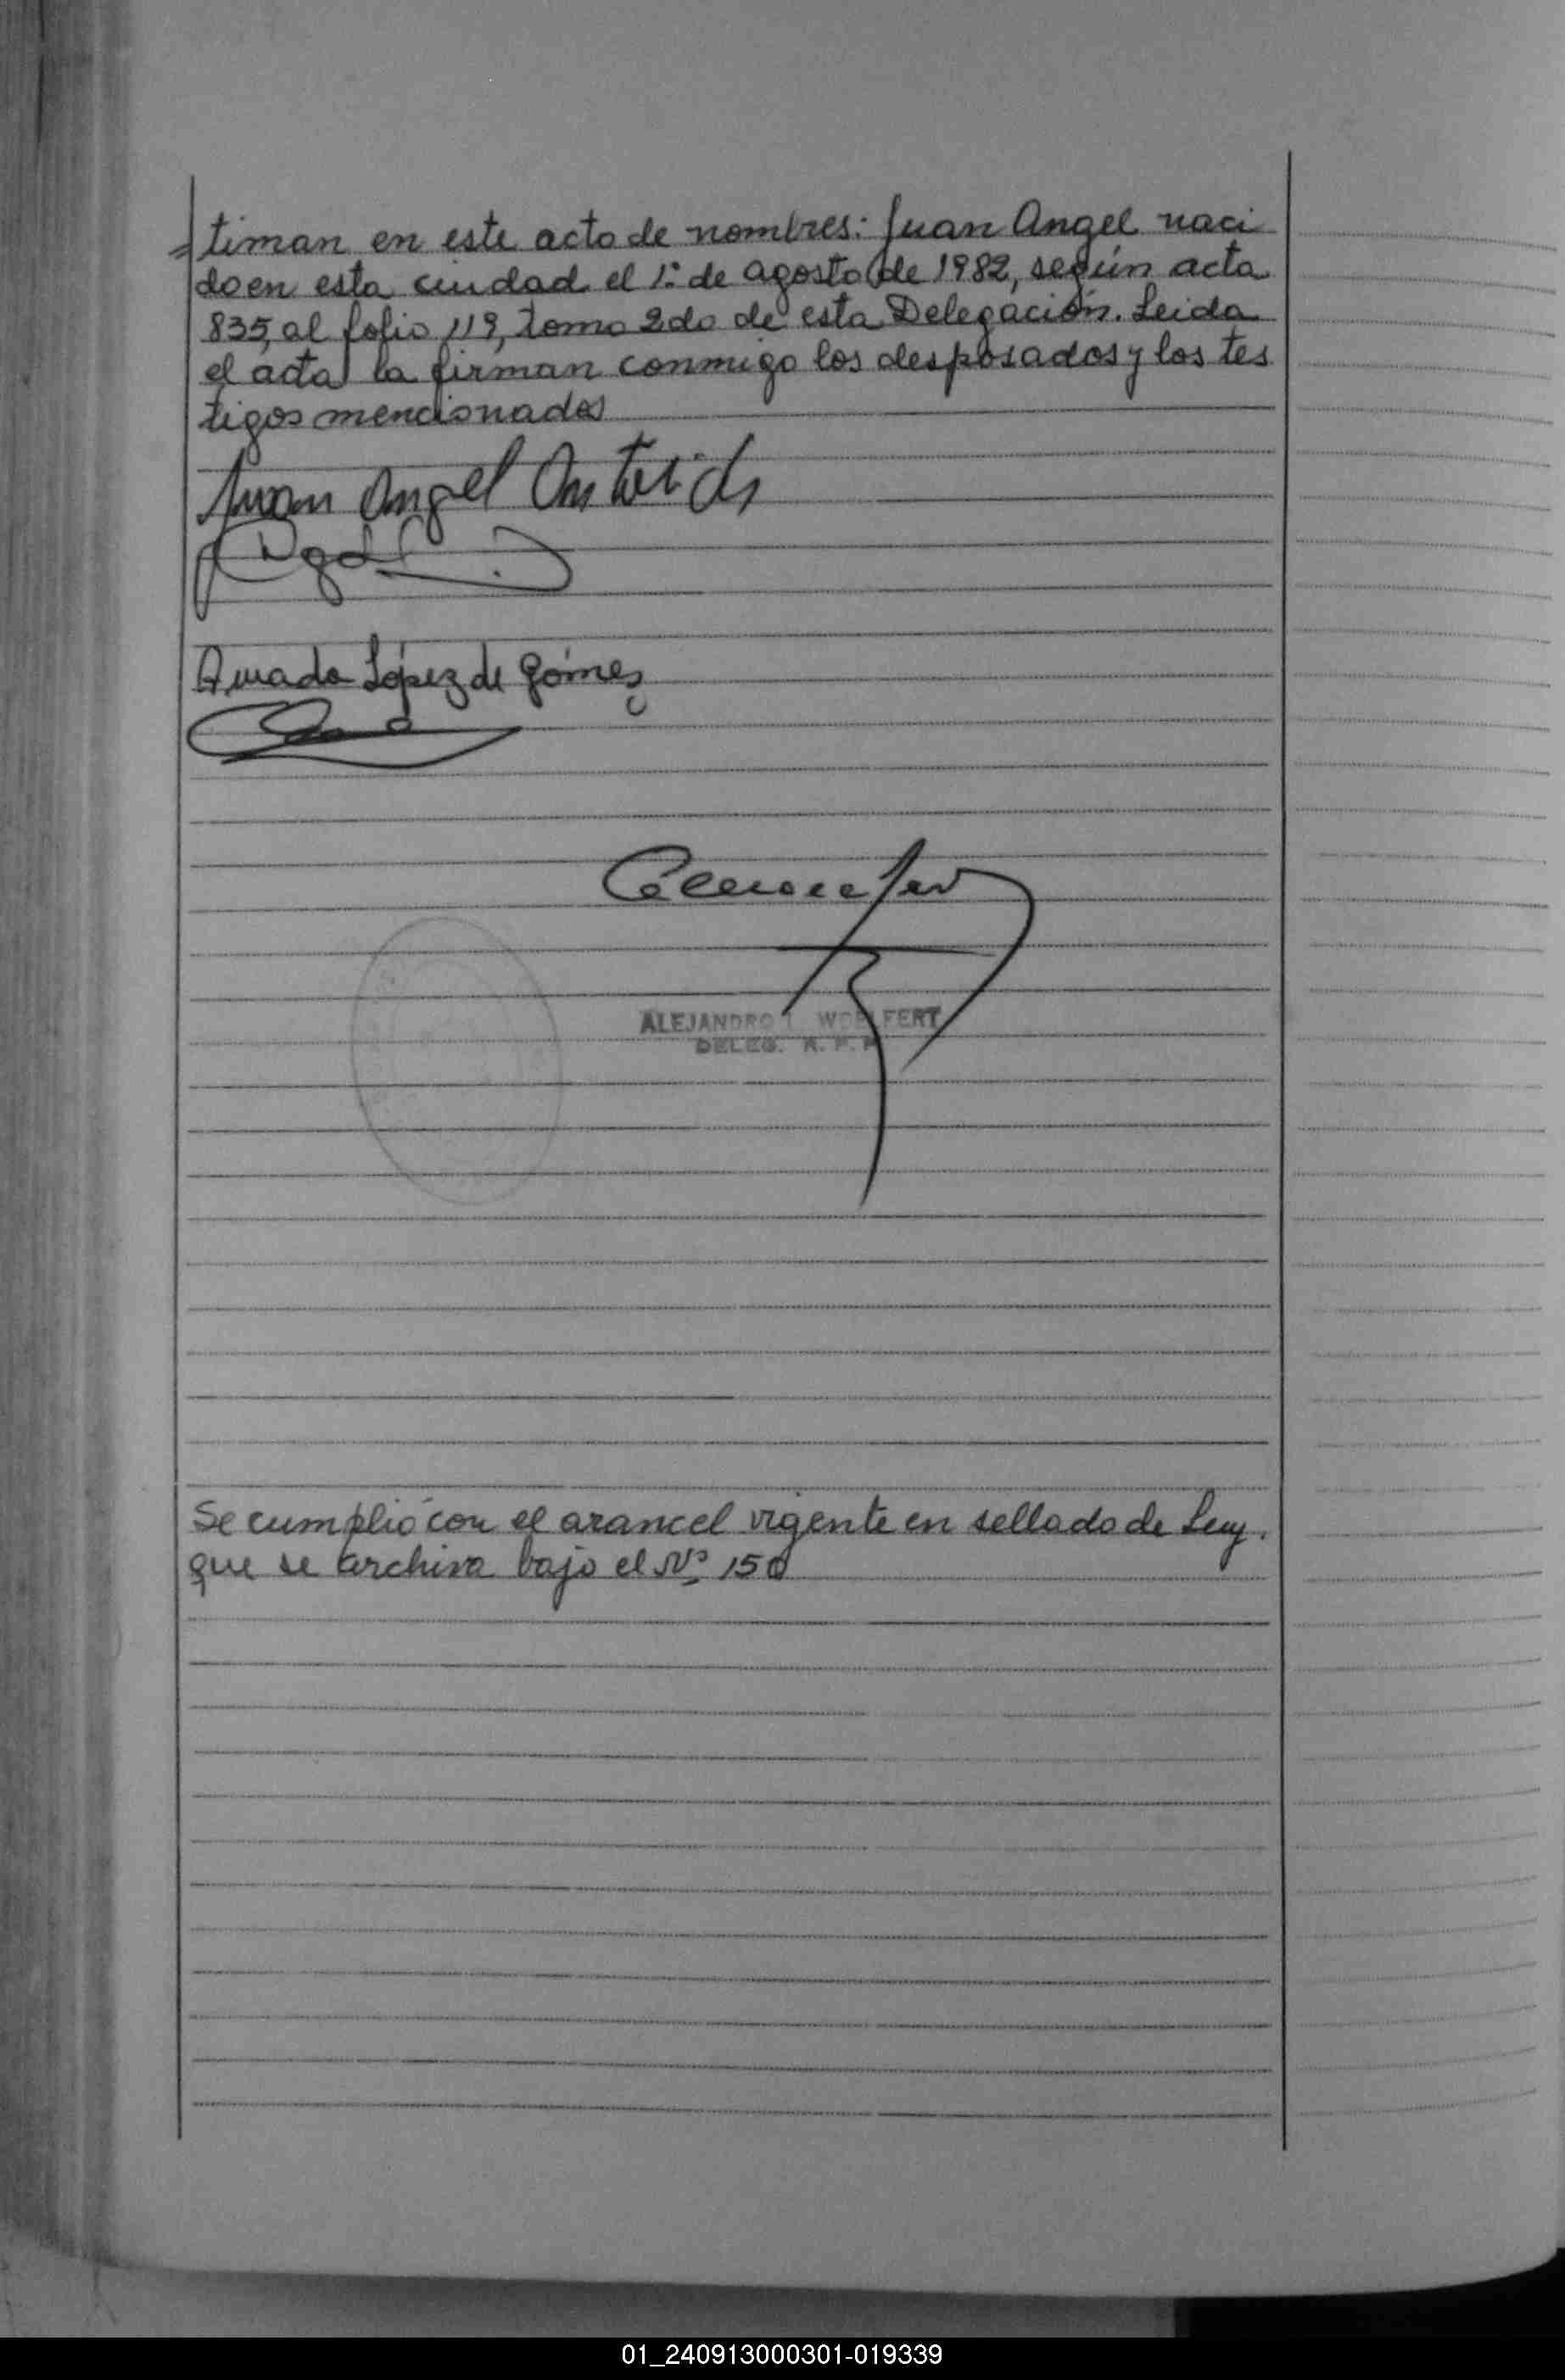 =timan en este acto de nombres: Juan Angel naci
do en esta ciudad el 1º de agosto de 1982, según acta
835, al folio 119, tomo 2do de esta Delegación. Leida
el acta la firman conmigo los desposados y los tes
tigos mencionados
Juan Angel
Amada López de Gómez
ALEJANDRO WOELFERT
DELEG. R.
Se cumplió con el arancel vigente en sellado de Ley.
que se archiva bajo el Nº 150
01_240913000301-019339